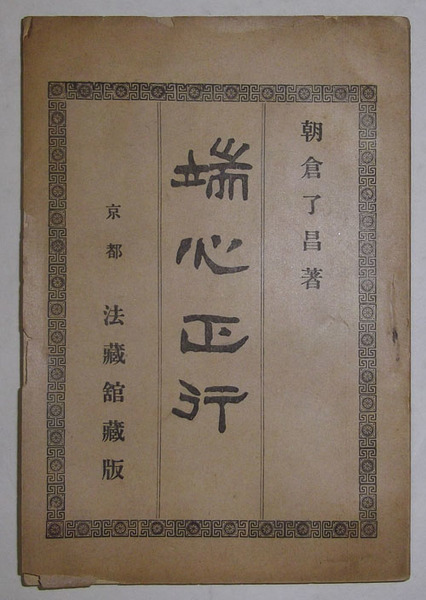 朝倉了昌著
端心正行
京都 法藏舘藏版